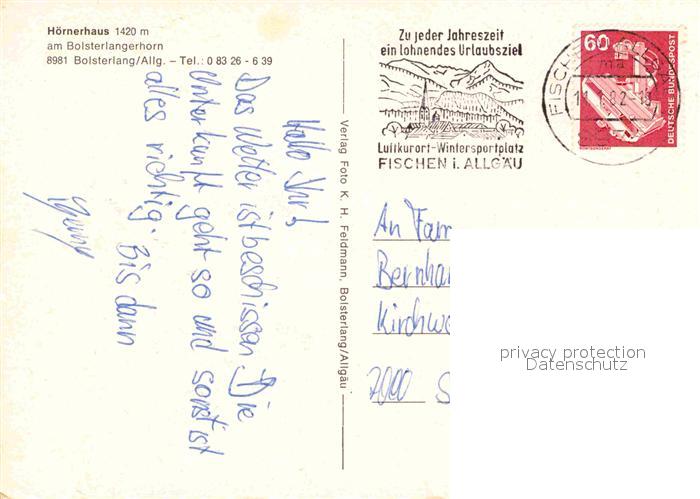 Hörnerhaus 1420 m
am Bolsterlangerhorn
8981 Bolsterlang/Allg. – Tel.: 0 83 26 - 6 39
Hallo Ihr!
Das Wetter ist beschissen. Die
Unterkunft geht so und sonst ist
alles richtig. Bis dann
Verlag Foto K. H. Feldmann, Bolsterlang/Allgäu
Zu jeder Jahreszeit
ein lohnendes Urlaubsziel
Luftkurort-Wintersportplatz
FISCHEN i. ALLGÄU
FISCHE
11
82-18
60
DEUTSCHE BUNDESPOST
RÖNTGENGERÄT
An Fam
Bernha
Kirchwe
7000 S
privacy protection
Datenschutz